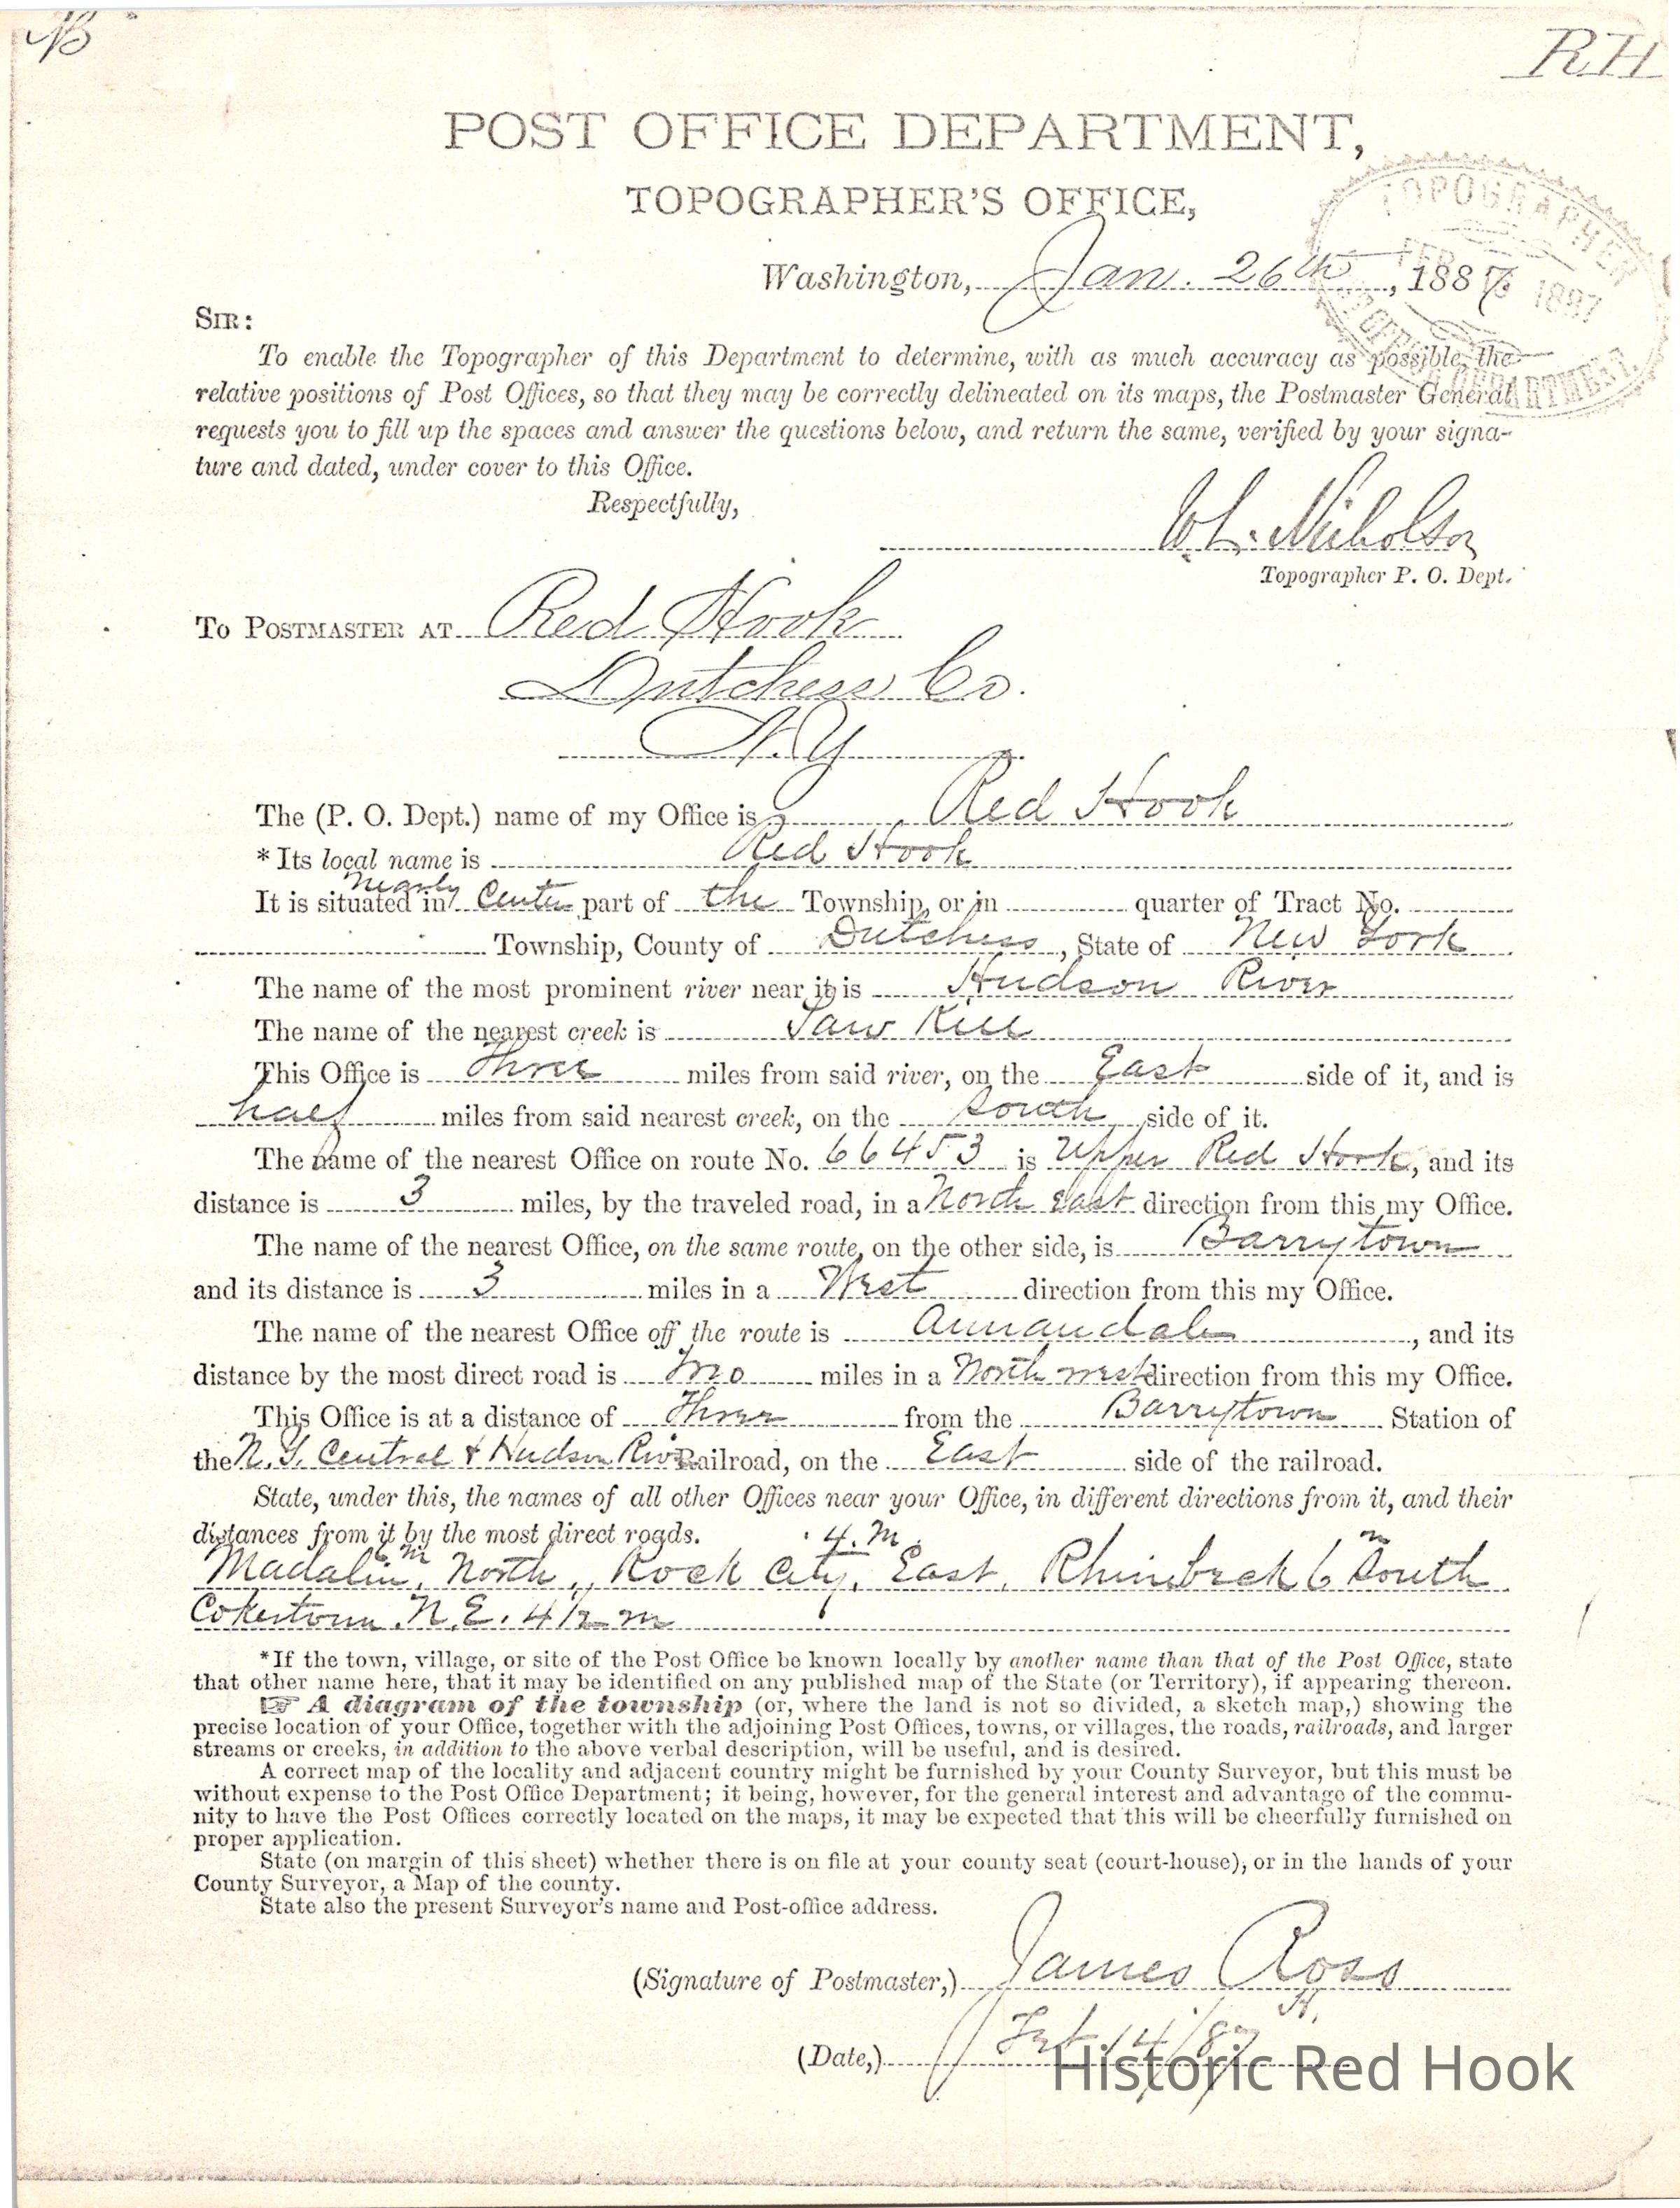 RH
POST OFFICE DEPARTMENT,
TOPOGRAPHER'S OFFICE,
TOPOGRAPHER
FEB 1887
DEPARTMENT
Washington, Jan. 26th, 1887.
SIR:
To enable the Topographer of this Department to determine, with as much accuracy as possible, the
relative positions of Post Offices, so that they may be correctly delineated on its maps, the Postmaster General
requests you to fill up the spaces and answer the questions below, and return the same, verified by your signa-
ture and dated, under cover to this Office.
Respectfully,
W. L. Nicholson
Topographer P. O. Dept.
TO POSTMASTER AT Red Hook
Dutchess Co.
N.Y
The (P. O. Dept.) name of my Office is Red Hook
*Its local name is Red Hook
nearly
It is situated in Center part of the Township, or in quarter of Tract No.
Township, County of Dutchess, State of New York
The name of the most prominent river near it is Hudson River
The name of the nearest creek is Saw Kill
This Office is Three miles from said river, on the East side of it, and is
half miles from said nearest creek, on the South side of it.
The name of the nearest Office on route No. 66453 is Upper Red Hook, and its
distance is 3 miles, by the traveled road, in a North East direction from this my Office.
The name of the nearest Office, on the same route, on the other side, is Barrytown
and its distance is 3 miles in a West direction from this my Office.
The name of the nearest Office off the route is Annandale, and its
distance by the most direct road is Two miles in a North west direction from this my Office.
This Office is at a distance of Three from the Barrytown Station of
the N.Y. Central & Hudson Riv Railroad, on the East side of the railroad.
State, under this, the names of all other Offices near your Office, in different directions from it, and their
distances from it by the most direct roads. 4. M.
Madalin, North, Rock City, East, Rhinebeck 6 m South
Cokertown N.E. 4 1/2 m
*If the town, village, or site of the Post Office be known locally by another name than that of the Post Office, state
that other name here, that it may be identified on any published map of the State (or Territory), if appearing thereon.
☞ A diagram of the township (or, where the land is not so divided, a sketch map,) showing the
precise location of your Office, together with the adjoining Post Offices, towns, or villages, the roads, railroads, and larger
streams or creeks, in addition to the above verbal description, will be useful, and is desired.
A correct map of the locality and adjacent country might be furnished by your County Surveyor, but this must be
without expense to the Post Office Department; it being, however, for the general interest and advantage of the commu-
nity to have the Post Offices correctly located on the maps, it may be expected that this will be cheerfully furnished on
proper application.
State (on margin of this sheet) whether there is on file at your county seat (court-house), or in the hands of your
County Surveyor, a Map of the county.
State also the present Surveyor's name and Post-office address.
(Signature of Postmaster,) James Ross
(Date,) Feb 14/87
Historic Red Hook